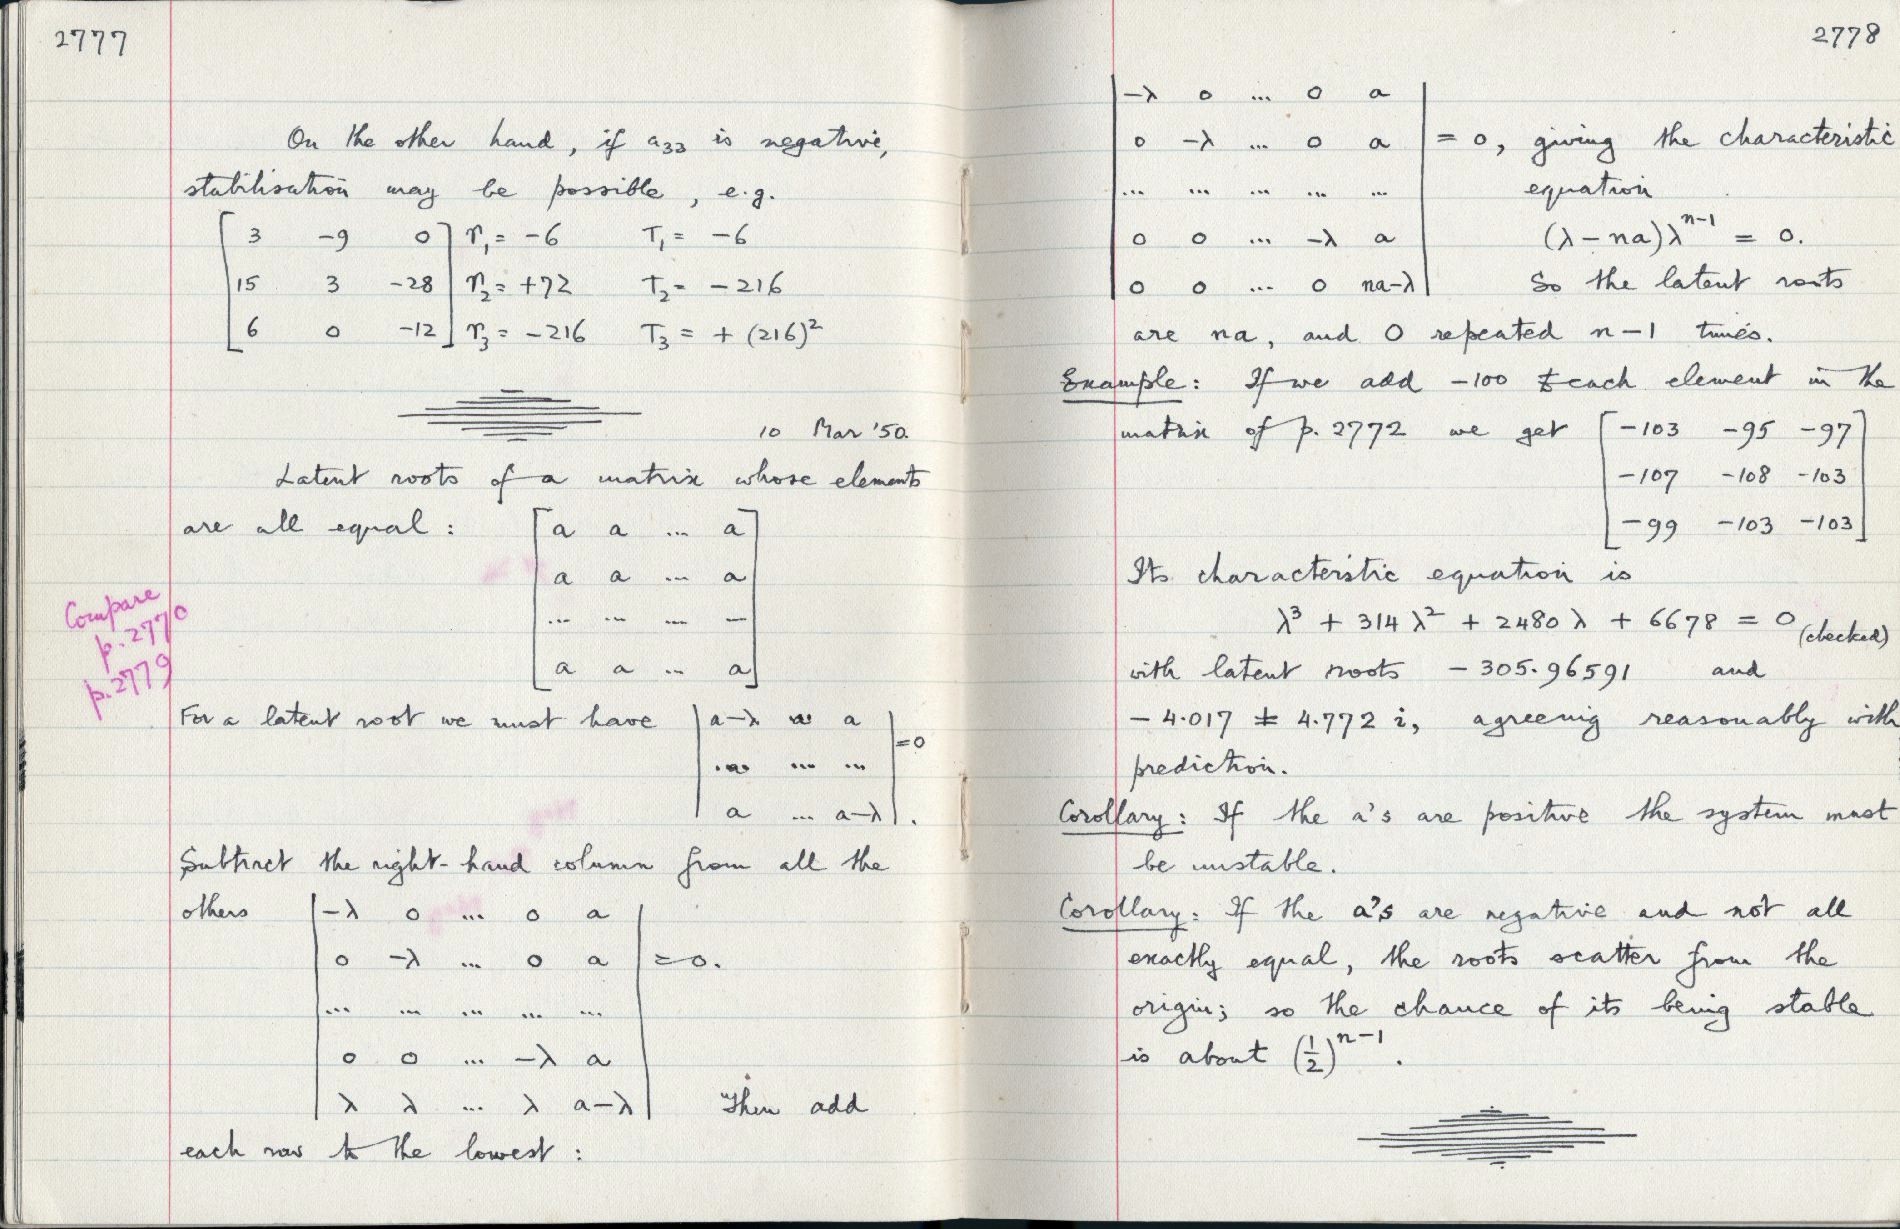 2777
On the other hand, if a₃₃ is negative,
stabilisation may be possible, e.g.
[ 3 -9 0 ] r₁ = -6 T₁ = -6
[ 15 3 -28 ] r₂ = +72 T₂ = -216
[ 6 0 -12 ] r₃ = -216 T₃ = + (216)²
10 Mar '50.
Latent roots of a matrix whose elements
are all equal : [ a a ... a ]
[ a a ... a ]
[ ... ... ... ... ]
[ a a ... a ]
Compare
p.2770
p.2779
For a latent root we must have | a-λ ... a |
| ... ... ... | =0
| a ... a-λ | .
Subtract the right-hand column from all the
others | -λ 0 ... 0 a |
| 0 -λ ... 0 a | =0.
| ... ... ... ... ... |
| 0 0 ... -λ a |
| λ λ ... λ a-λ | Then add
each row to the lowest :
2778
| -λ 0 ... 0 a |
| 0 -λ ... 0 a | = 0, giving the characteristic
| ... ... ... ... ... | equation
| 0 0 ... -λ a | (λ - na)λⁿ⁻¹ = 0.
| 0 0 ... 0 na-λ | So the latent roots
are na, and 0 repeated n-1 times.
Example: If we add -100 to each element in the
matrix of p. 2772 we get [ -103 -95 -97 ]
[ -107 -108 -103 ]
[ -99 -103 -103 ]
Its characteristic equation is
λ³ + 314 λ² + 2480 λ + 6678 = 0 (checked)
with latent roots -305.96591 and
-4.017 ± 4.772 i, agreeing reasonably with
prediction.
Corollary: If the a's are positive the system must
be unstable.
Corollary: If the a's are negative and not all
exactly equal, the roots scatter from the
origin; so the chance of its being stable
is about (1/2)ⁿ⁻¹.